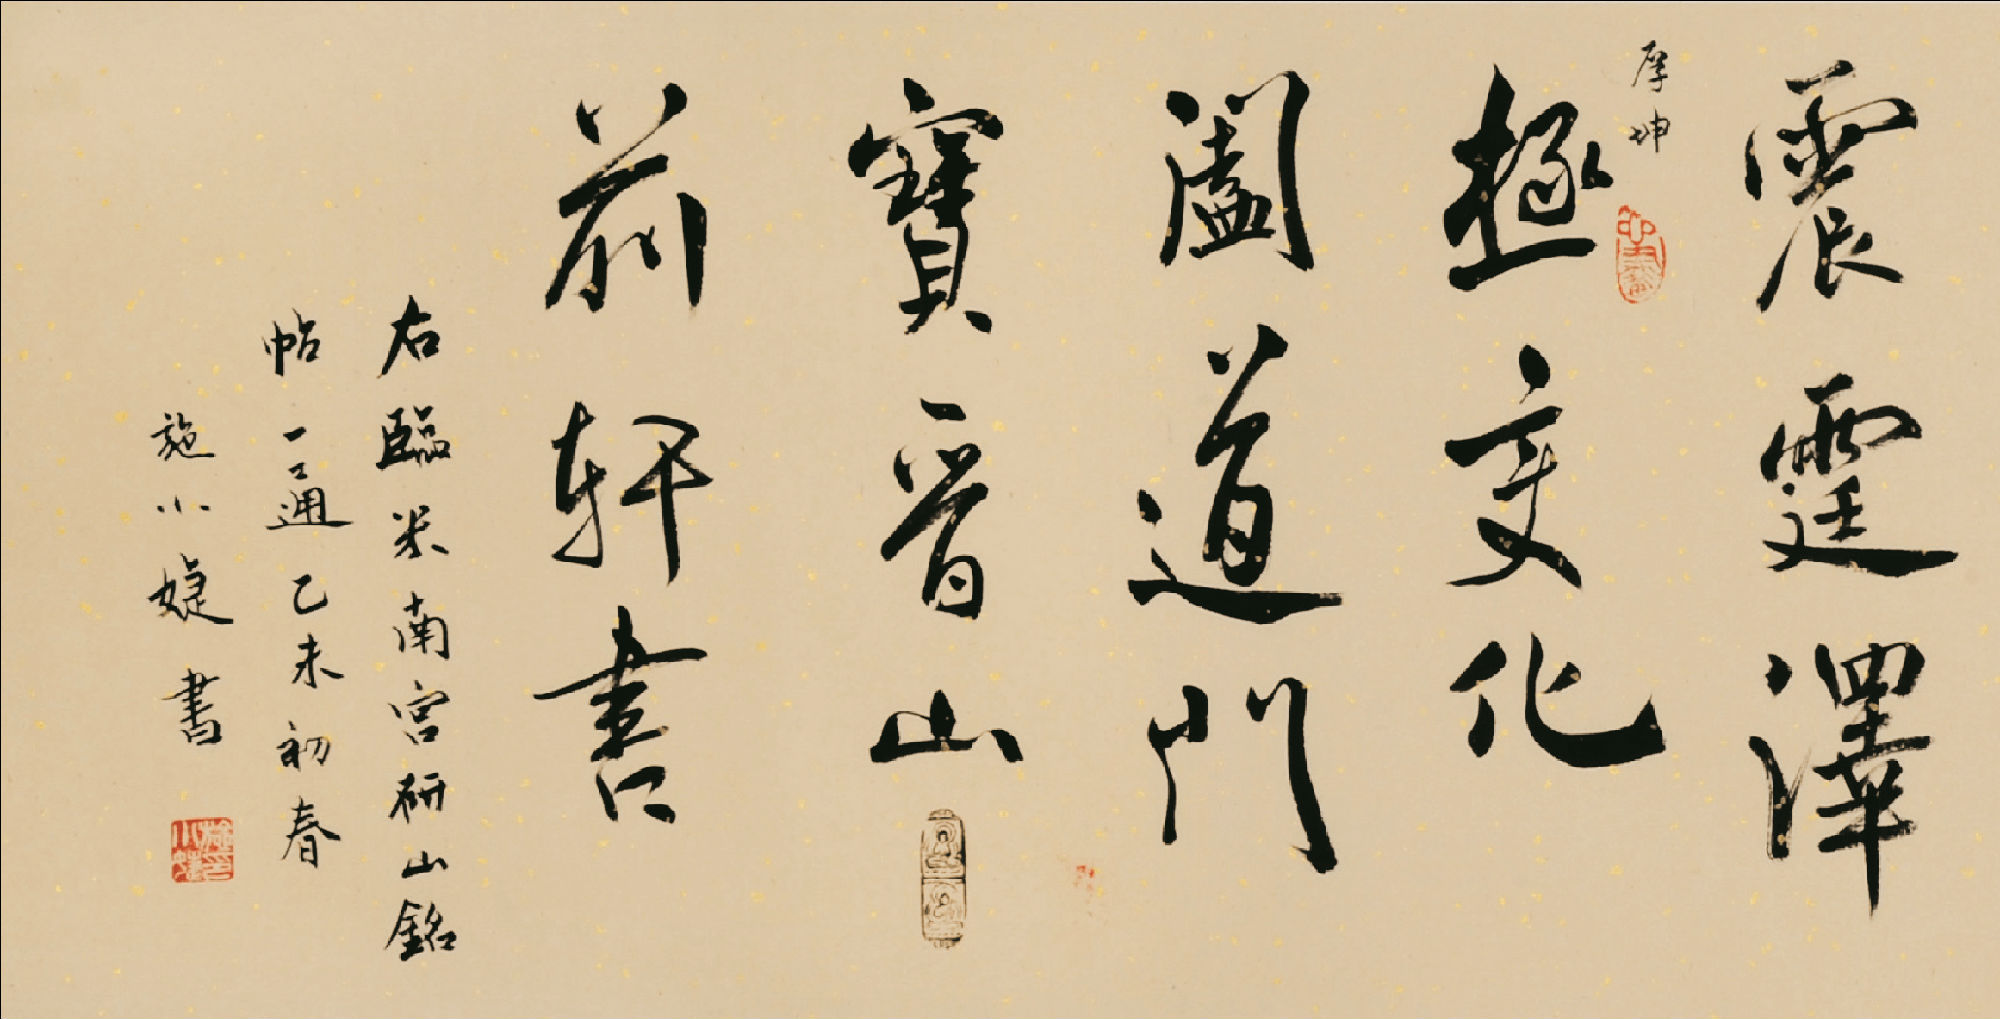 震霆澤
厚坤
極變化
闔道門
寶晉山
前軒書
右臨米南宮研山銘
帖一通乙未初春
施小婕書
施小婕印